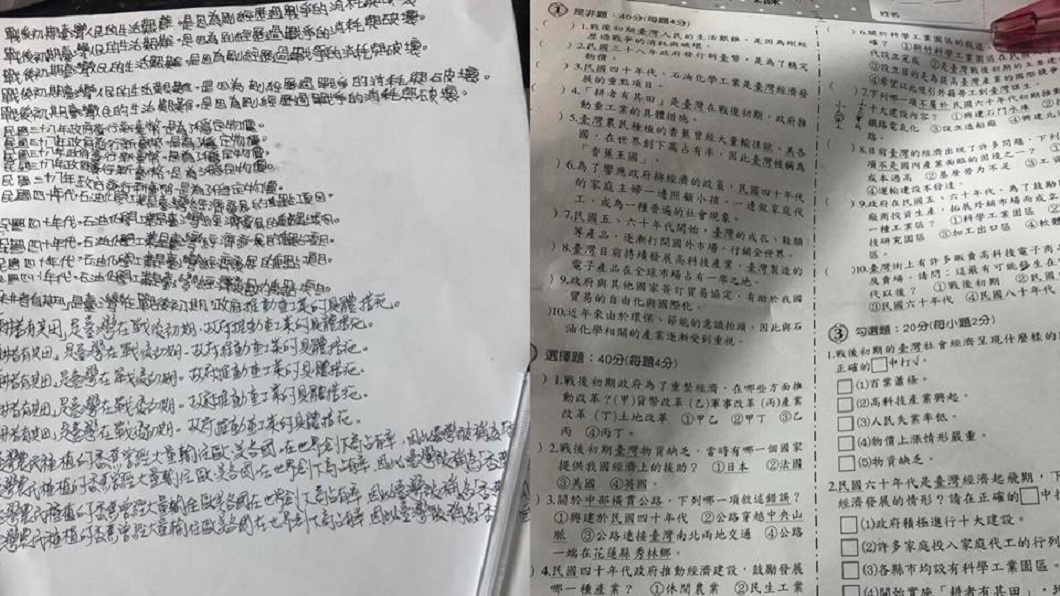 戰後初期臺灣人民的生活艱難，是因為剛經歷過戰爭的消耗與破壞。
戰後初期臺灣人民的生活艱難，是因為剛經歷過戰爭的消耗與破壞。
戰後初期臺灣人民的生活艱難，是因為剛經歷過戰爭的消耗與破壞。
戰後初期臺灣人民的生活艱難，是因為剛經歷過戰爭的消耗與破壞。
戰後初期臺灣人民的生活艱難，是因為剛經歷過戰爭的消耗與破壞。
民國三十八年政府發行新臺幣，是為了穩定物價。
民國三十八年政府發行新臺幣，是為了穩定物價。
民國三十八年政府發行新臺幣，是為了穩定物價。
民國三十八年政府發行新臺幣，是為了穩定物價。
民國三十八年政府發行新臺幣，是為了穩定物價。
民國四十年代，石油化學工業是臺灣經濟發展的重點項目。
民國四十年代，石油化學工業是臺灣經濟發展的重點項目。
民國四十年代，石油化學工業是臺灣經濟發展的重點項目。
民國四十年代，石油化學工業是臺灣經濟發展的重點項目。
民國四十年代，石油化學工業是臺灣經濟發展的重點項目。
耕者有其田，是臺灣在戰後初期，政府推動重工業的具體措施。
耕者有其田，是臺灣在戰後初期，政府推動重工業的具體措施。
耕者有其田，是臺灣在戰後初期，政府推動重工業的具體措施。
耕者有其田，是臺灣在戰後初期，政府推動重工業的具體措施。
耕者有其田，是臺灣在戰後初期，政府推動重工業的具體措施。
耕者有其田，是臺灣在戰後初期，政府推動重工業的具體措施。
臺灣農民種植的香蕉曾經大量輸往歐、美各國，在世界創下高占有率，因此臺灣被稱為
臺灣農民種植的香蕉曾經大量輸往歐、美各國，在世界創下高占有率，因此臺灣被稱為香蕉
臺灣農民種植的香蕉曾經大量輸往歐、美各國，在世界創下高占有率，因此臺灣被稱為香
臺灣農民種植的香蕉曾經大量輸往歐、美各國，在世界創下高占有率，因此臺灣被稱為香
姓名
1 是非題：40分(每題4分)
( )1.戰後初期臺灣人民的生活艱難，是因為剛經
歷過戰爭的消耗與破壞。
( )2.民國三十八年政府發行的臺幣，是為了穩定
物價。
( )3.民國四十年代，石油化學工業是臺灣經濟發
展的重點項目。
( )4.「耕者有其田」是臺灣在戰後初期，政府推
動重工業的具體措施。
( )5.臺灣農民種植的香蕉曾經大量輸往歐、美各
國，在世界創下高占有率，因此臺灣被稱為
「香蕉王國」。
( )6.為了響應政府拚經濟的政策，民國四十年代
的家庭主婦一邊照顧小孩，一邊做家庭代
工，成為一種普遍的社會現象。
( )7.民國五、六十年代開始，臺灣的成衣、鞋類
等產品，逐漸打開國外市場，行銷全世界。
( )8.臺灣目前持續發展高科技產業，臺灣製造的
電子產品在全球市場占有一席之地。
( )9.政府與其他國家簽訂貿易協定，有助於我國
貿易的自由化與國際化。
( )10.近年來由於環保、節能的意識抬頭，因此與石
油化學相關的產業逐漸受到重視。
選擇題：40分(每題4分)
)1.戰後初期政府為了重整經濟，在哪些方面推
動改革？(甲)貨幣改革 (乙)軍事改革 (丙)產業
改革 (丁)土地改革 ①甲乙 ②甲丁 ③乙
丙 ④丙丁。
)2.戰後初期臺灣物資缺乏，當時有哪一個國家
提供我國經濟上的援助？ ①日本 ②法國
③美國 ④英國。
)3.關於中部橫貫公路，下列哪一項敘述錯誤？
①興建於民國四十年代 ②公路穿越中央山
脈 ③公路連接臺灣南北兩地交通 ④公路
一端在花蓮縣秀林鄉。
)4.民國四十年代政府推動經濟建設，鼓勵發展
哪一種產業？ ①休閒農業 ②民生工業
( )6.關於科學工業園區的敘述
確？ ①新竹科學工業園區在民
代設立完成 ②是臺灣戰後初期的
③設立目的是為提高臺灣產業的國際競爭
④希望以此吸引外籍勞工到臺灣謀生
( )7.下列哪一項不屬於民國六十年代初期推
十大建設內容？ ①興建石門水庫 ②
鐵路電氣化 ③設立造船廠 ④興建北
路。
( )8.目前臺灣的經濟出現了許多問題，下列
項不是國內產業面臨的困境之一？ ①
成本過高 ②基層勞力不足 ③
④運輸建設不發達。
( )9.政府在民國五、六十年代，為了鼓勵
廠商投資生產，拓展外銷市場而成立
一種工業區？ ①科學工業園區 ②
技研究園區 ③加工出口區 ④軟體
區。
( )10.臺灣街上有許多販賣高科技電子商
及賣場，請問：這最有可能發生在
代以後？ ①戰後初期 ②民國
③民國六十年代 ④民國八十年代
3 勾選題：20分(每小題2分)
1.戰後初期的臺灣社會經濟呈現什麼樣的
正確的□中打√。
□(1)百業蕭條。
□(2)高科技產業興起。
□(3)人民失業率低。
□(4)物價上漲情形嚴重。
□(5)物資缺乏。
2.民國六十年代是臺灣經濟起飛期，下
經濟發展的情形？請在正確的□中
□(1)政府積極進行十大建設。
□(2)許多家庭投入家庭代工的行列
□(3)各縣市均設有科學工業園區。
□(4)開始實施「耕者有其田」，